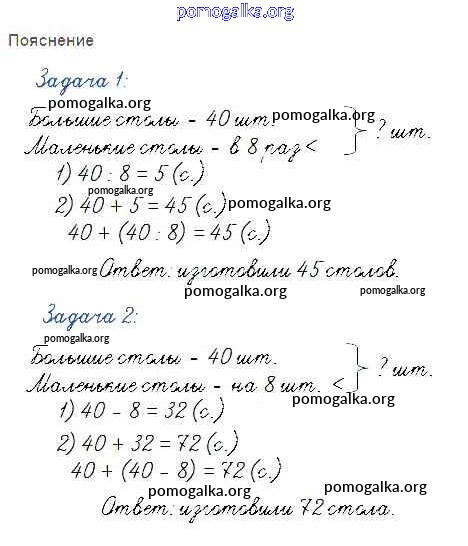 pomogalka.org
Пояснение
Задача 1:
pomogalka.org
Большие столы - 40 шт. pomogalka.org
Маленькие столы - в 8 раз < } ? шт.
1) 40 : 8 = 5 (с.)
pomogalka.org
2) 40 + 5 = 45 (с.) pomogalka.org
40 + (40 : 8) = 45 (с.)
pomogalka.org Ответ: изготовили 45 столов.
pomogalka.org pomogalka.org
Задача 2:
pomogalka.org
Большие столы - 40 шт.
Маленькие столы - на 8 шт. < } ? шт.
pomogalka.org
1) 40 - 8 = 32 (с.)
2) 40 + 32 = 72 (с.)
40 + (40 - 8) = 72 (с.)
pomogalka.org pomogalka.org
Ответ: изготовили 72 стола.